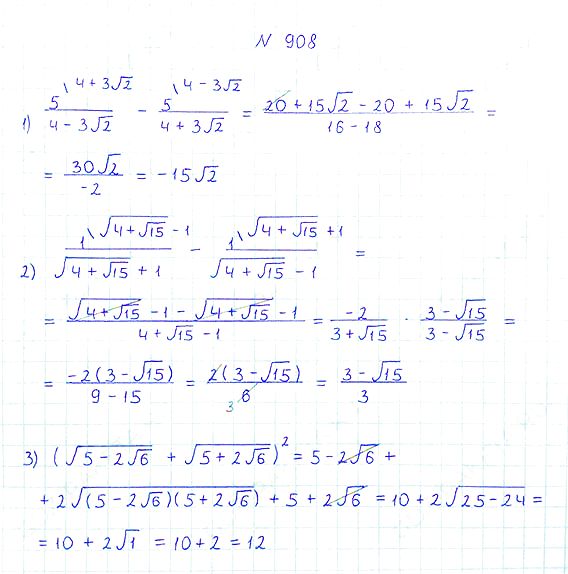 N 908
1) 5\4 + 3√2 / (4 - 3√2) - 5\4 - 3√2 / (4 + 3√2) = (20 + 15√2 - 20 + 15√2) / (16 - 18) =
= 30√2 / -2 = -15√2
2) 1\√(4 + √15) - 1 / (√(4 + √15) + 1) - 1\√(4 + √15) + 1 / (√(4 + √15) - 1) =
= (√(4 + √15) - 1 - √(4 + √15) - 1) / (4 + √15 - 1) = -2 / (3 + √15) · (3 - √15) / (3 - √15) =
= -2(3 - √15) / (9 - 15) = 2(3 - √15) / 6 3 = (3 - √15) / 3
3) (√(5 - 2√6) + √(5 + 2√6))² = 5 - 2√6 +
+ 2√((5 - 2√6)(5 + 2√6)) + 5 + 2√6 = 10 + 2√(25 - 24) =
= 10 + 2√1 = 10 + 2 = 12